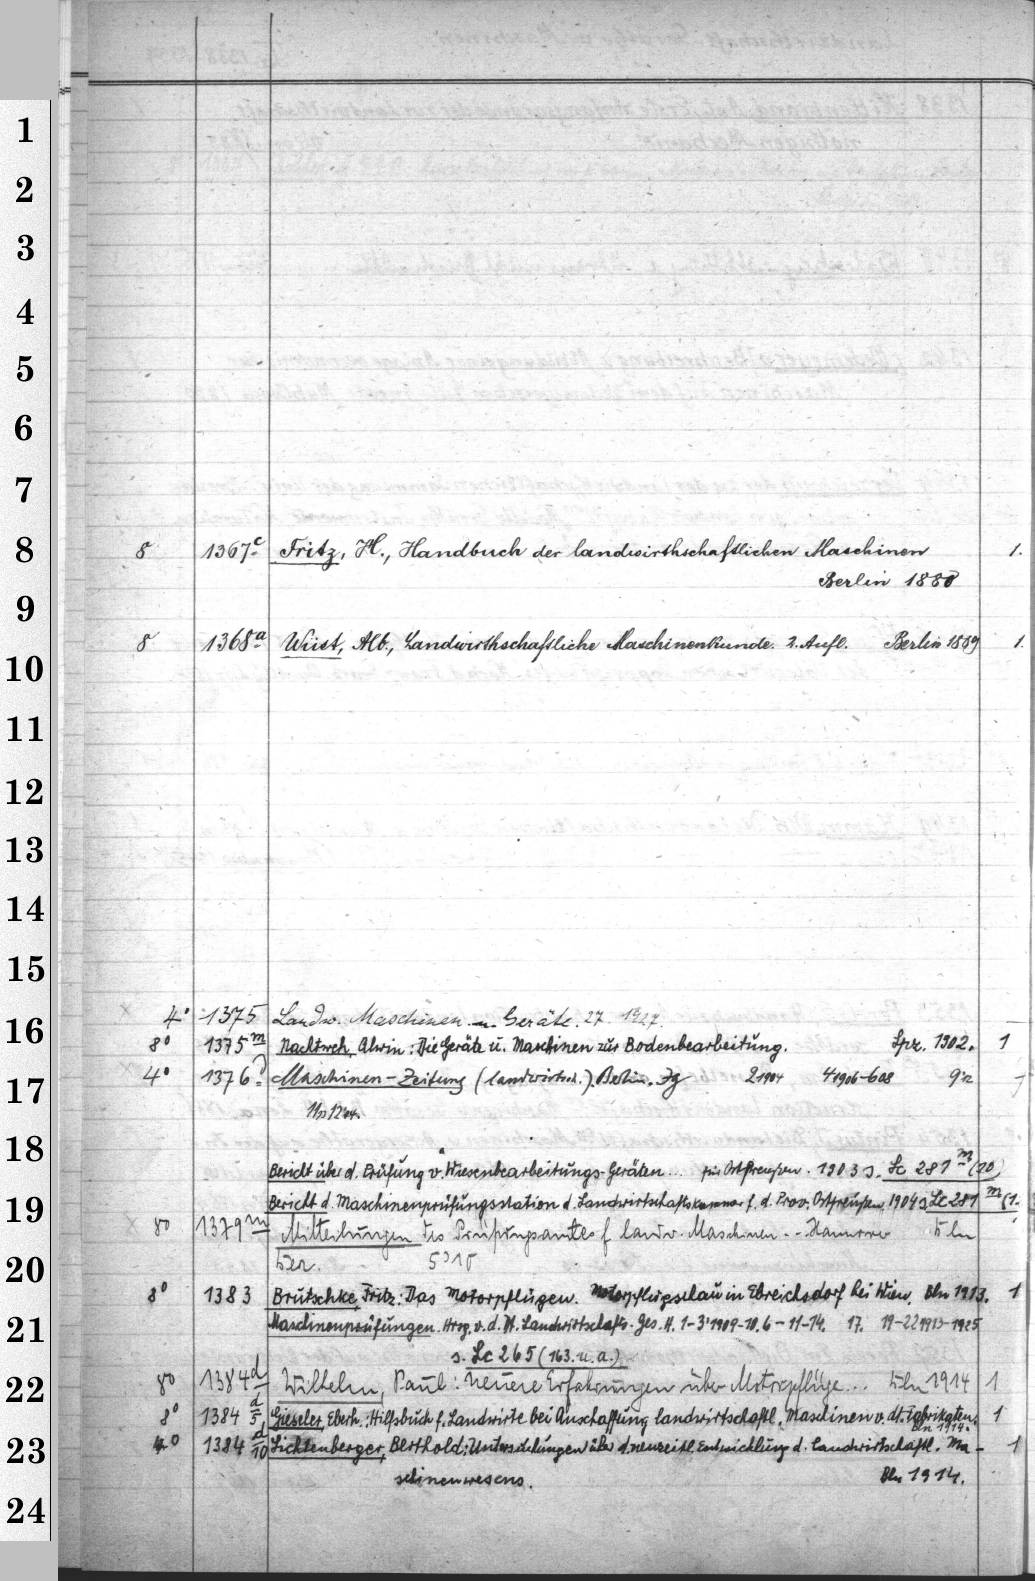 1
2
3
4
5
6
7
8
8 1367c Fritz, H., Handbuch der landwirthschaftlichen Maschinen 1.
Berlin 1880
9
8 1368a Wüst, Alb., Landwirthschaftliche Maschinenkunde. 2. Aufl. Berlin 1889 1.
10
11
12
13
14
15
16
4° 1375 Landw. Maschinen u. Geräte. 27. 1927.
8° 1375m Nachtweh, Alwin: Die Geräte u. Maschinen zur Bodenbearbeitung. Lpz. 1902. 1
17
4° 1376 Maschinen-Zeitung (landwirtsch.). Berlin. Jg 2 1904 4 1906-6 08
18
Bericht über d. Prüfung v. Wiesenbearbeitungs-Geräten... für Ostpreußen. 1903 s. Lc 281m (10)
19
Bericht d. Maschinenprüfungsstation d. Landwirtschaftskammer f. d. Prov. Ostpreußen, 1904 s Lc 281m (1.
8° 1379m Mitteilungen des Prüfungsamtes f. landw. Maschinen.. Hannover
20
8° 1383 Brutschke, Fritz: Das Motorpflügen. Motorpflugschau in Ebreichsdorf bei Wien. Bln 1913. 1
21
Maschinenprüfungen. Hrsg. v. d. Dt. Landwirtschafts-Ges. H. 1-3 1909-10, 6-11-14. 17. 19-22 1913-1925
s. Lc 265 (163. u. a.)
22
8° 1384d Wilhelm, Paul: Neuere Erfahrungen über Motorpflüge... Bln 1914 1
8° 1384 d/5 Gieseler, Eberh.: Hilfsbuch f. Landwirte bei Anschaffung landwirtschaftl. Maschinen v. dt. Fabrikaten. 1
Bln 1914.
23
4° 1384 d/10 Lichtenberger, Berthold: Untersuchungen über d. neuzeitl. Entwicklung d. landwirtschaftl. Ma- 1
schinenwesens. Bln 1914.
24